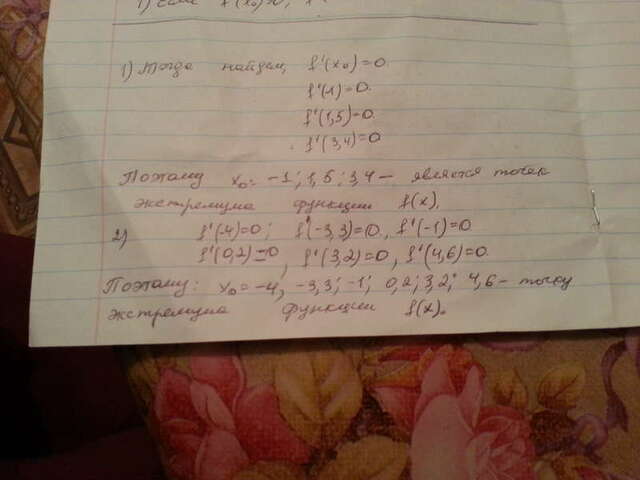 1) Если f'(x₀)
1) Тогда найдем, f'(x₀)=0.
f'(-1)=0.
f'(1,5)=0.
f'(3,4)=0
Поэтому x₀= -1; 1,5; 3,4 - является точек
экстремума функции f(x).
2) f'(-4)=0; f'(-3,3)=0, f'(-1)=0
f'(0,2)=0, f'(3,2)=0, f'(4,6)=0.
Поэтому: x₀=-4, -3,3; -1; 0,2; 3,2; 4,6- точку
экстремума функции f(x).